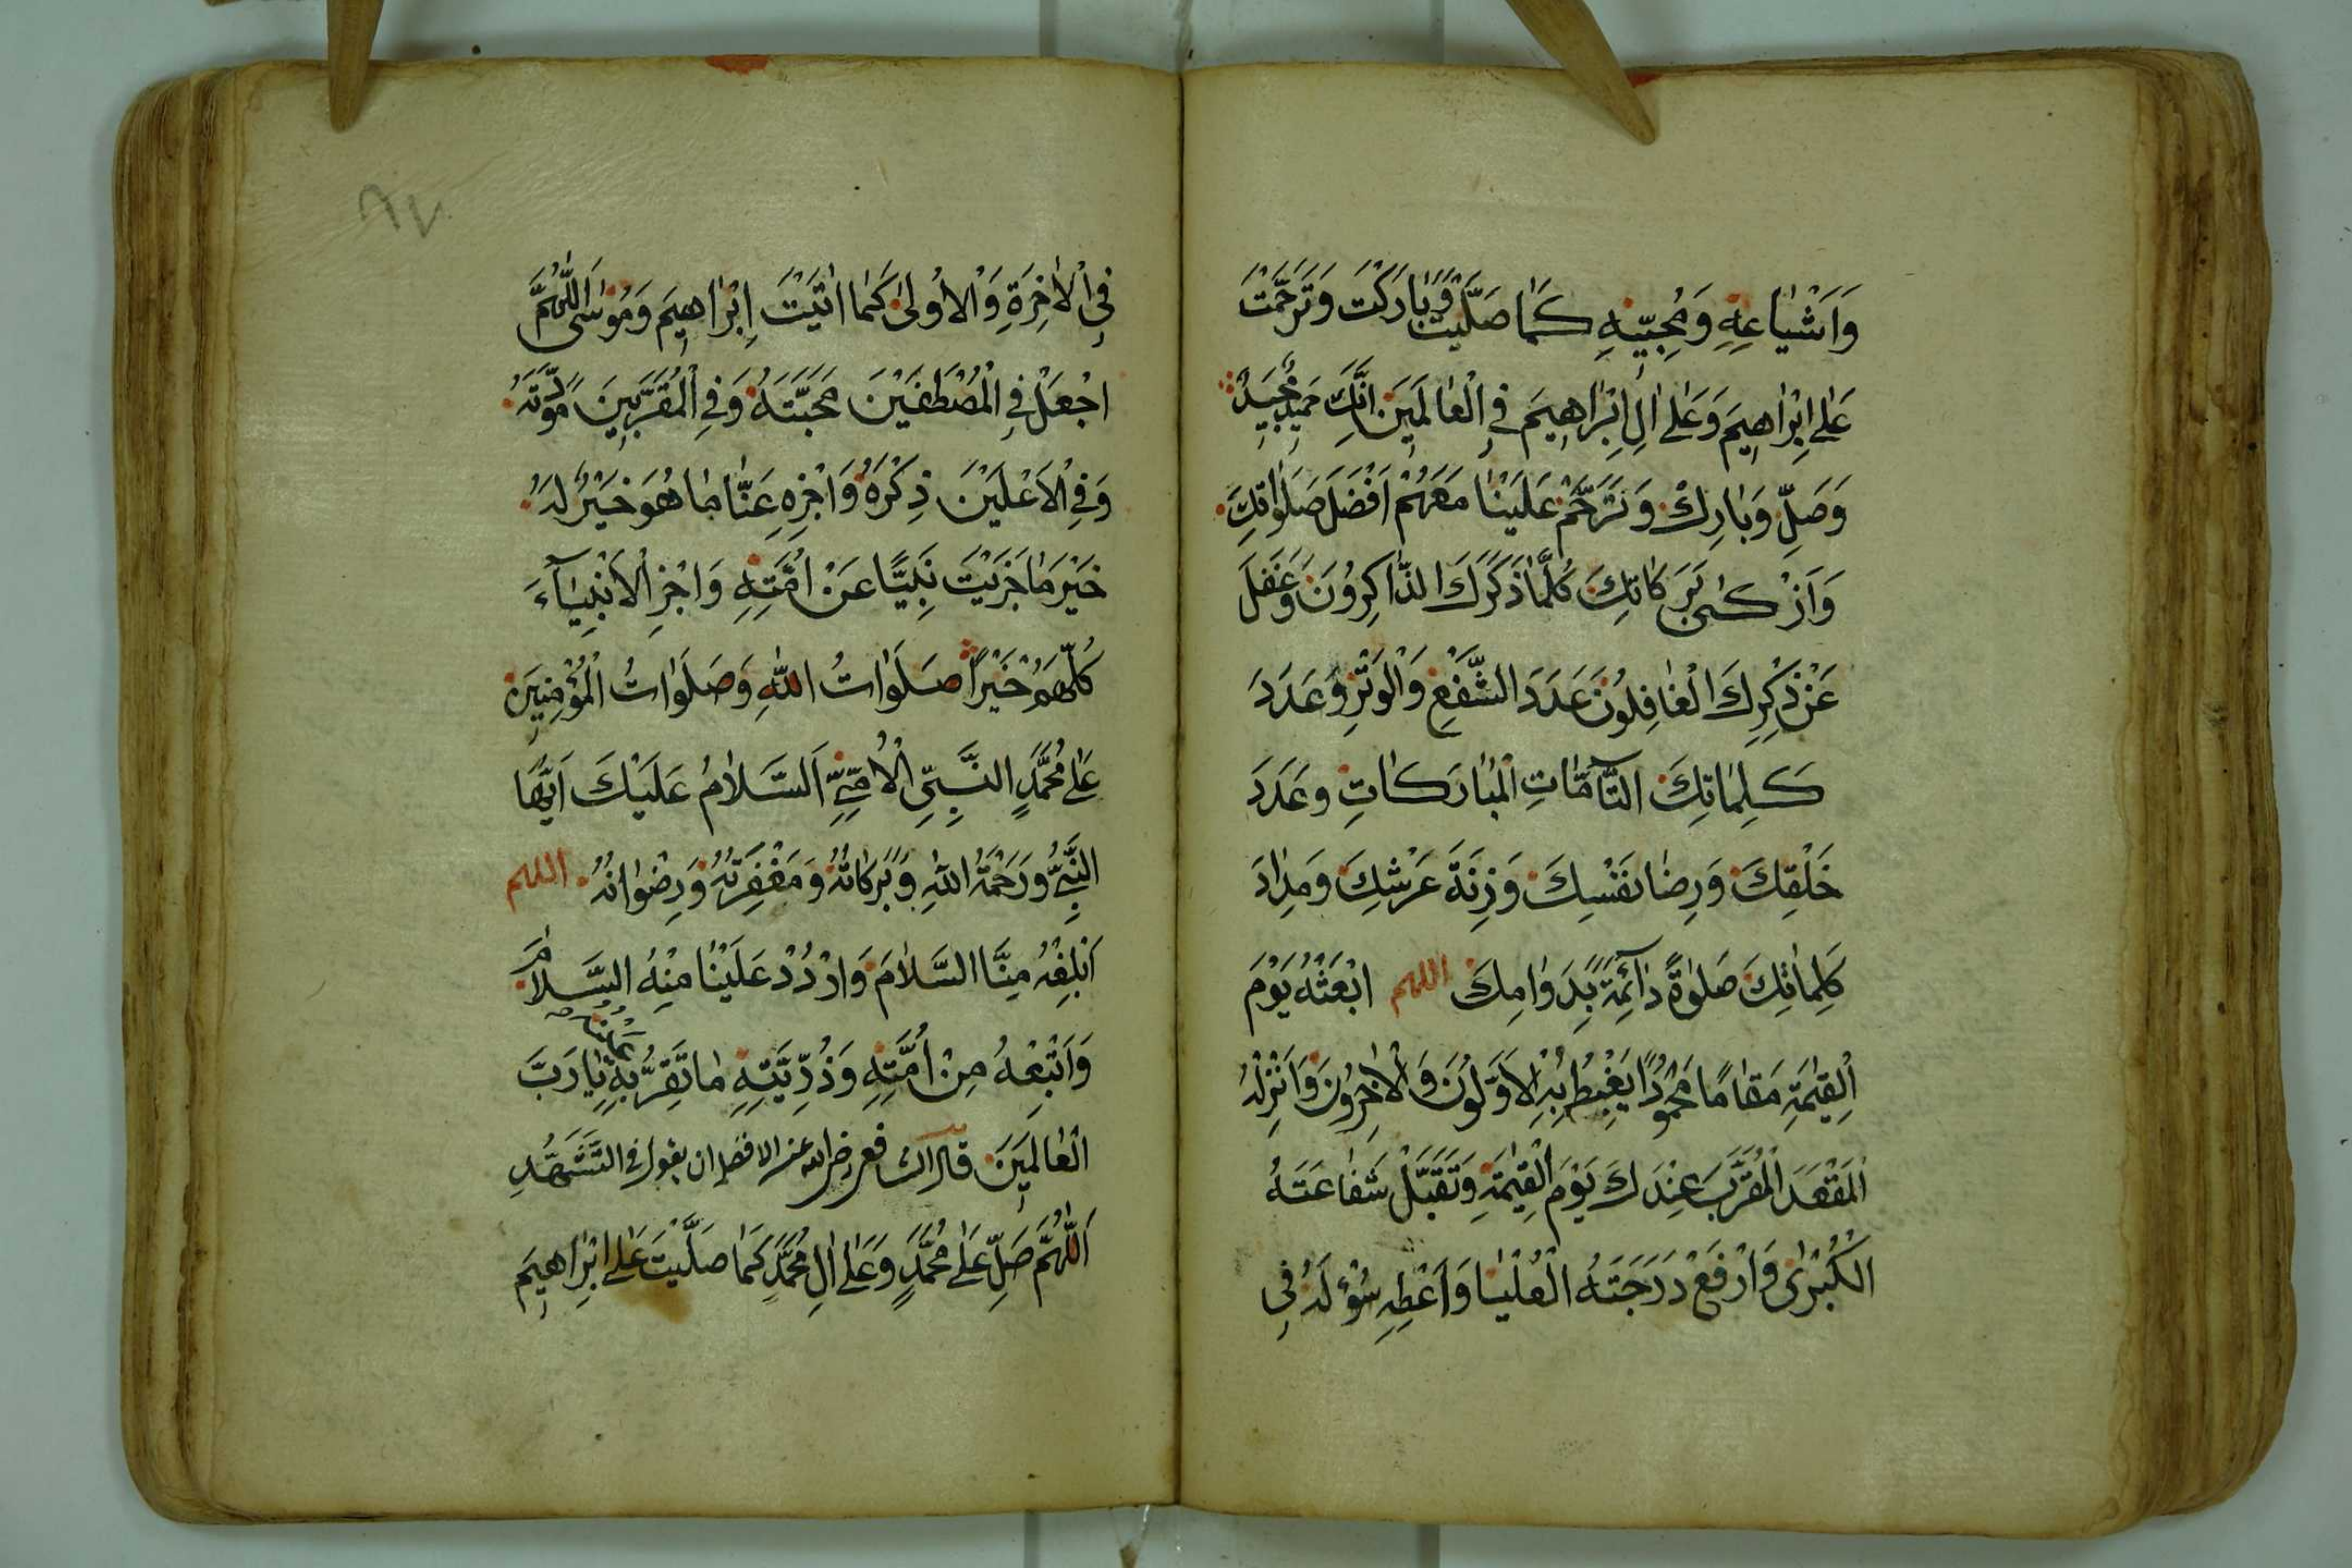 وَاَشْيَاعِهِ وَمُحِبِّيْهِ كَمَا صَلَّيْتَ وَبَارَكْتَ وَتَرَحَّمْتَ
عَلٰى اِبْرٰاهِيمَ وَعَلٰى اٰلِ اِبْرٰاهِيمَ فِي الْعٰالَمِيَنَ اِنَّكَ حَمِيدٌ مَجِيدٌ
وَصَلِّ وَبَارِكْ وَتَرَحَّمْ عَلَيْنٰا مَعَهُمْ اَفْضَلَ صَلَوٰاتِكَ
وَاَزْكٰى بَرَكَاتِكَ كُلَّمَا ذَكَرَكَ الذّٰاكِرُوْنَ وَغَفَلَ
عَنْ ذِكْرِكَ الْغٰافِلُوْنَ عَدَدَ الشَّفْعِ وَالْوَتْرِ وَعَدَدَ
كَلِمٰاتِكَ التَّآمَّاتِ الْمُبٰارَكٰاتِ وَعَدَدَ
خَلْقِكَ وَرِضٰا نَفْسِكَ وَزِنَةَ عَرْشِكَ وَمِدٰادَ
كَلِمٰاتِكَ صَلٰوةً دٰآئِمَةً بِدَوٰامِكَ اللهم ابْعَثْهُ يَوْمَ
الْقِيٰمَةِ مَقٰامًا مَحْمُوْدًا يَغْبِطُهُ بِهِ الْاَوَّلُوْنَ وَالْاٰخِرُوْنَ وَاَنْزِلْهُ
الْمَقْعَدَ الْمُقَرَّبَ عِنْدَكَ يَوْمَ الْقِيٰمَةِ وَتَقَبَّلْ شَفٰاعَتَهُ
الْكُبْرٰى وَارْفَعْ دَرَجَتَهُ الْعُلْيٰا وَاَعْطِهِ سُؤْلَهُ فِي
٨٧
فِي الْاٰخِرَةِ وَالْاُوْلٰى كَمٰا اٰتَيْتَ اِبْرٰاهِيمَ وَمُوْسٰى اَللّٰهُمَّ
اجْعَلْ فِي الْمُصْطَفَيْنَ مَحَبَّتَهُ وَفِي الْمُقَرَّبِيْنَ مَوَدَّتَهُ
وَفِي الْاَعْلَيْنَ ذِكْرَهُ وَاجْزِهِ عَنّٰا مٰا هُوَ خَيْرٌ لَهُ
خَيْرَ مٰا جَزَيْتَ نَبِيًّا عَنْ اُمَّتِهِ وَاجْزِ الْاَنْبِيٰآءَ
كُلَّهُمْ خَيْرًا صَلَوٰاتُ اللّٰهِ وَصَلَوٰاتُ الْمُؤْمِنِيَنَ
عَلٰى مُحَمَّدٍ النَّبِيِّ الْاُمِّيِّ اَلسَّلاٰمُ عَلَيْكَ اَيُّهَا
النَّبِيُّ وَرَحْمَةُ اللّٰهِ وَبَرَكٰاتُهُ وَمَغْفِرَتُهُ وَرِضْوٰانُهُ اللهم
اَبْلِغْهُ مِنَّا السَّلاٰمَ وَارْدُدْ عَلَيْنٰا مِنْهُ السَّلاٰمَ
وَاَتْبِعْهُ مِنْ اُمَّتِهِ وَذُرِّيَّتِهِ مٰا تَقِرُّ بِهِ عَيْنُهُ يٰا رَبَّ
الْعٰالَمِيَنَ قال الشافعي رضي الله عنه الافضل ان يقول في التَّشَهُّدِ
اَللّٰهُمَّ صَلِّ عَلٰى مُحَمَّدٍ وَعَلٰى اٰلِ مُحَمَّدٍ كَمٰا صَلَّيْتَ عَلٰى اِبْرٰاهِيمَ